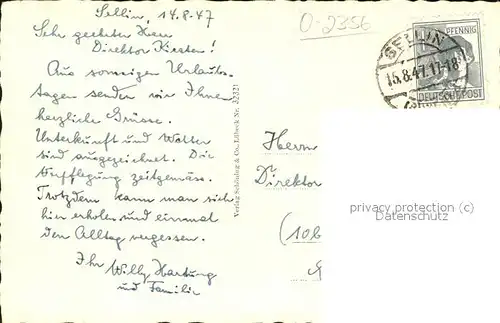 Sellin, 14.8.47
Sehr geehrter Herr
Direktor Kirsten!
Aus sonnigen Urlaubs-
tagen senden wir Ihnen
herzliche Grüsse.
Unterkunft und Wetter
sind ausgezeichnet. Die
Verpflegung zeitgemäss.
Trotzdem kann man sich
hier erholen und einmal
den Alltag vergessen.
Ihr Willy Hartung
und Familie
Verlag Schöning & Co., Lübeck Nr. 32321
O-2356
PFENNIG
SELLIN
15.8.47.17-18
DEUTSCHE POST
Herrn
Direktor
(10b
privacy protection (c)
Datenschutz